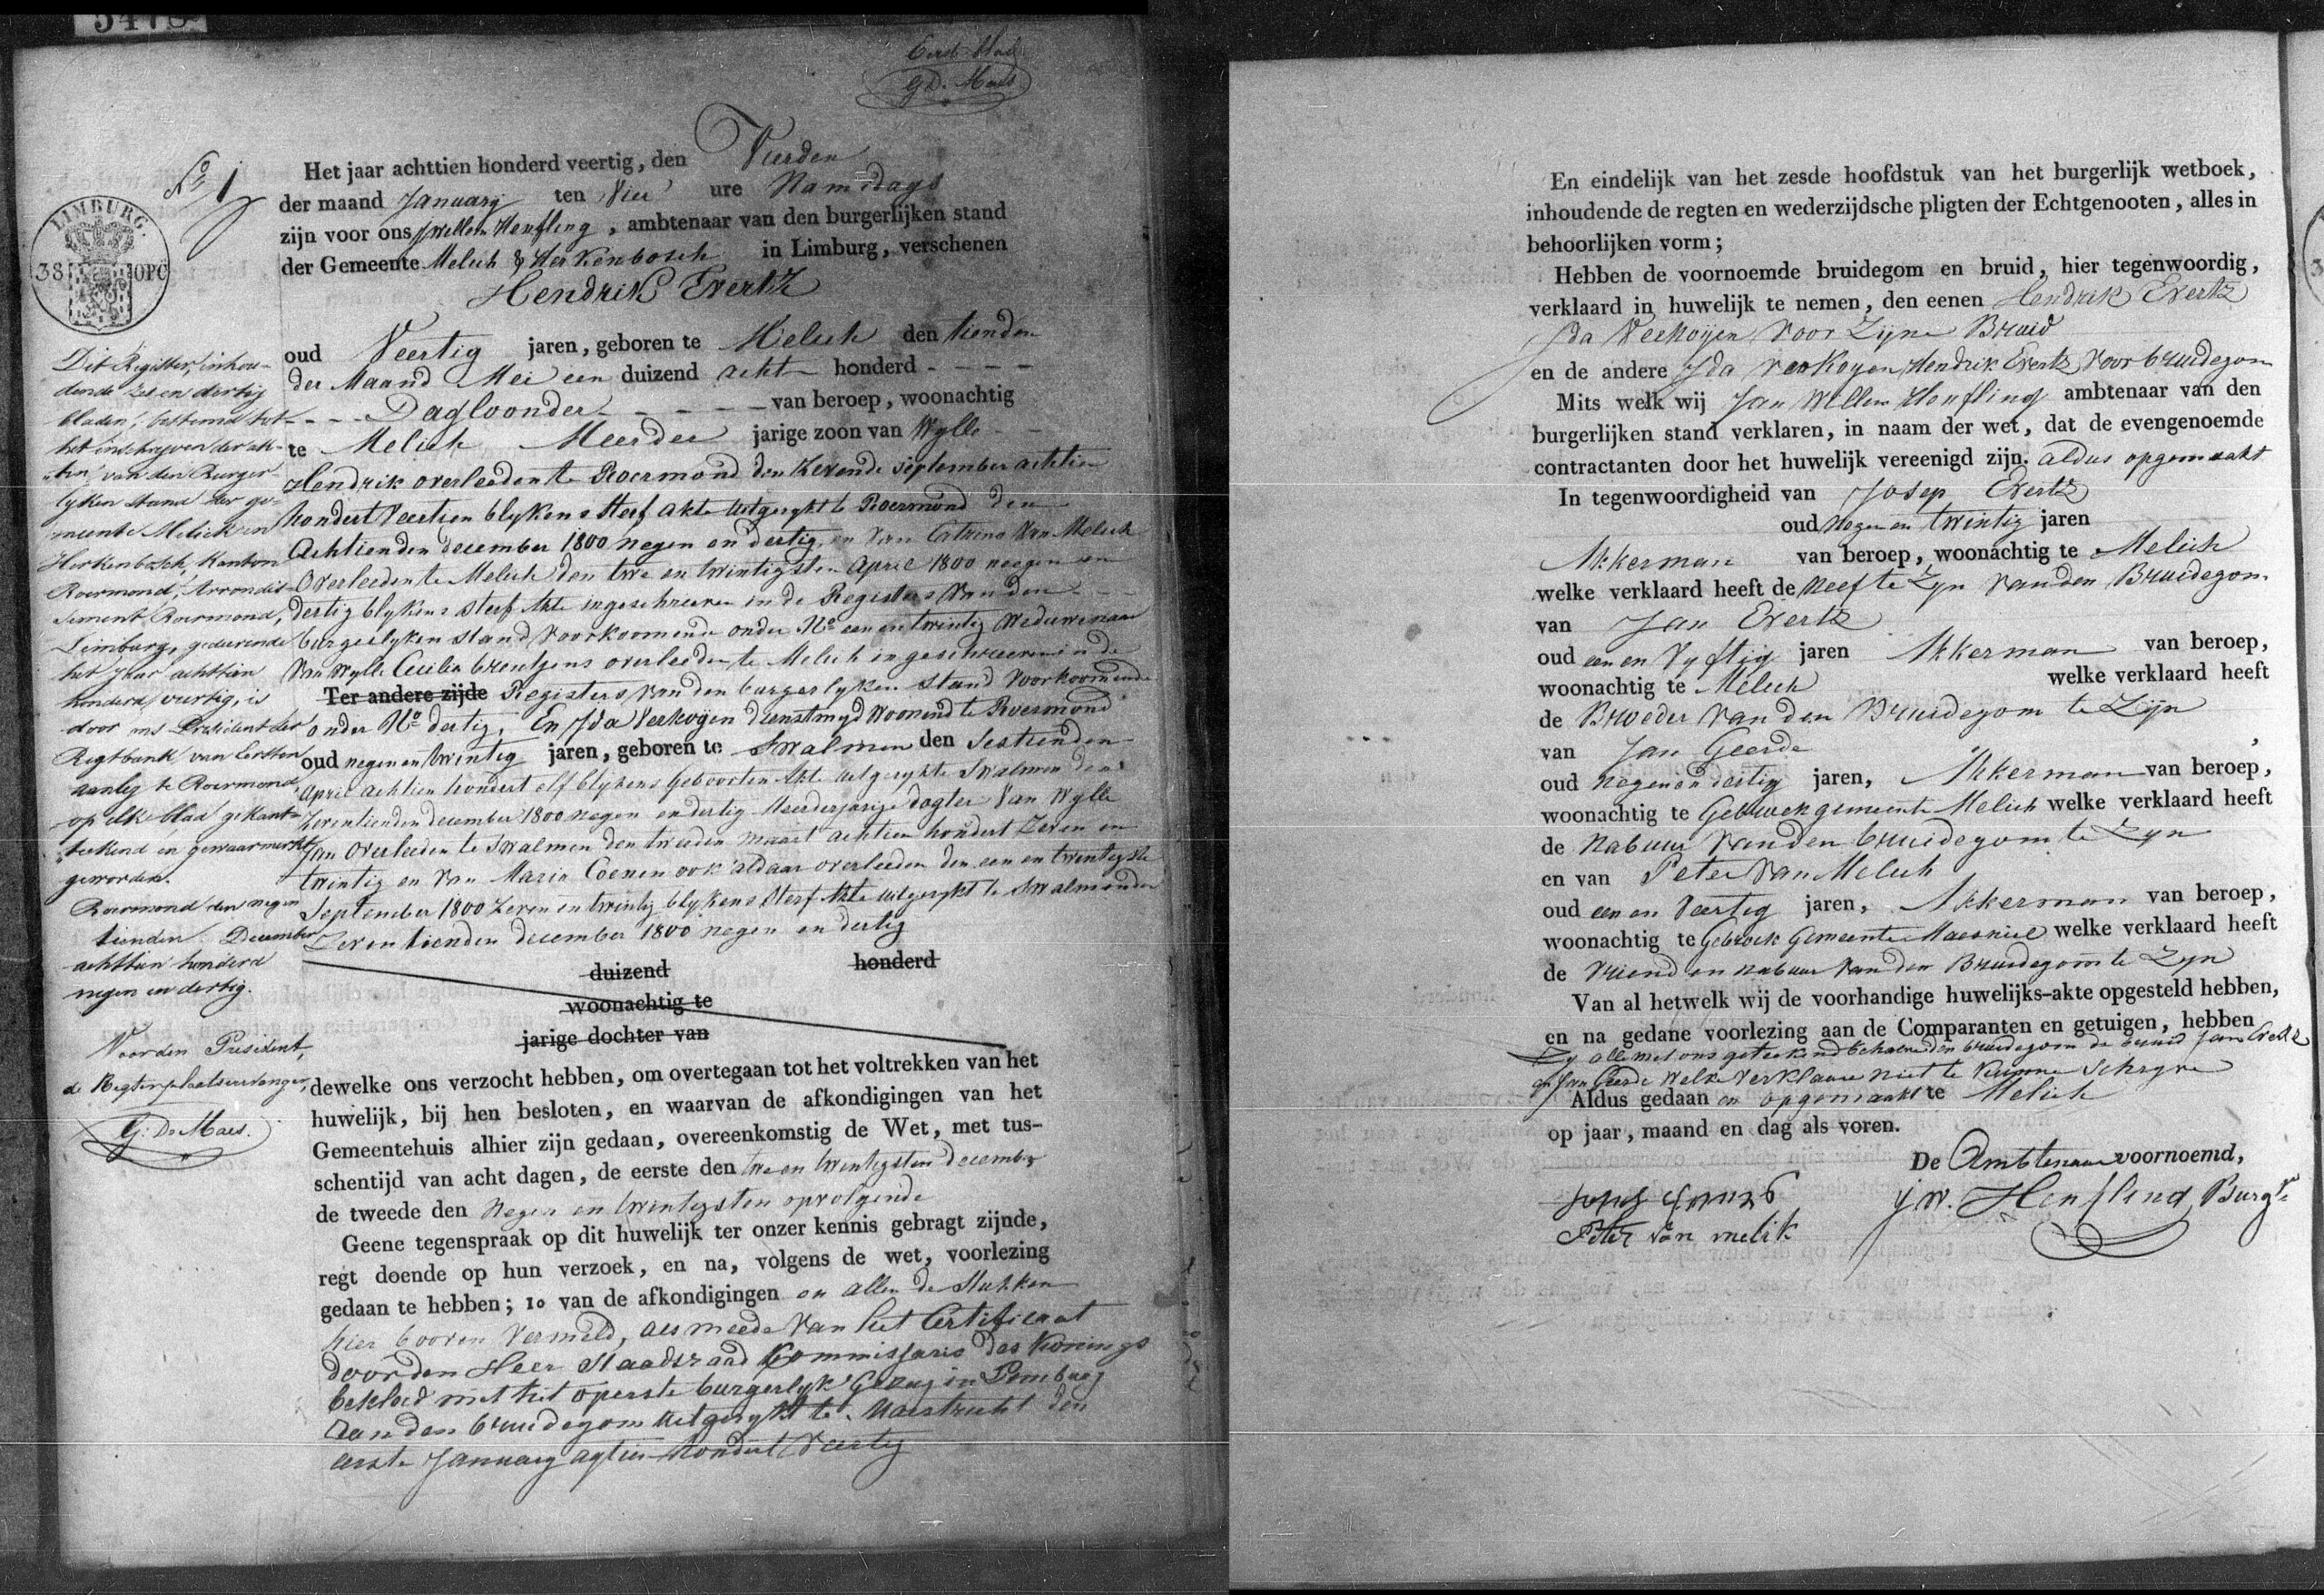 5478
Eerste blad
GD. Maes
No 1
LIMBURG.
38 OPC
Dit Register, inhou-
dende zes en dertig
bladen, bestemd tot
het inschryven der ak-
ten van den Burger-
lyken stand der ge-
meente Melick en
Herkenbosch, Kanton
Roermond, Arrondis-
sement Roermond,
Limburg, gedurende
het jaar achttien
honderd veertig, is
door ons President der
Regtbank van Eersten
aanleg te Roermond,
op elk blad gekant-
teekend en gewaarmerkt
geworden.
Roermond den negen
tienden December
achttien honderd
negen en dertig.
Voor den President,
de Regter plaatsvervanger,
G: D: Maes.
Het jaar achttien honderd veertig, den Vierden
der maand January ten Vier ure Namidags
zijn voor ons J willem Henfling, ambtenaar van den burgerlijken stand
der Gemeente Melich & Herkenbosch in Limburg, verschenen
Hendrik Evertz
oud Veertig jaren, geboren te Melich den tienden
der Maand Mei een duizend acht honderd
Dagloonder van beroep, woonachtig
te Melich Meerder jarige zoon van Wylle
Hendrik overleeden te Roermond den Zevende september achtien
hondert Veertien blykens sterf akte uitgerykt te Roermond den
Achtienden december 1800 negen en dertig, en Van Catrina Van Melich
Overleeden te Melich den twe en twintigsten April 1800 neegen en
dertig blykens sterf Akte ingeschreeven in de Registers Van den
burgerlyken stand Voorkoomende onder No een en twintig Weduwenaar
Van Wylle Cecilia breutgens overleeden te Melich ingeschreeven in de
Ter andere zijde Registers Van den burgerlyken stand Voorkoomende
onder No dertig, En Ida Verkoyen dienstmyd Woonend te Roermond
oud negen en twintig jaren, geboren te Swalmen den Sestienden
April achtien hondert elf blykens Geboorten Akte uitgerykte Swalmen den
Zeventienden december 1800 negen en dertig Meerderjarige dogter Van Wylle
Jan Overleeden te Swalmen den tweeden maart achtien hondert Zeven en
twintig en Van Maria Coenen ook aldaar overleeden den een en twintigste
September 1800 Zeven en twintig blykens sterf Akte uitgerykt te Swalmen den
Zeven tienden december 1800 negen en dertig
duizend honderd
woonachtig te
jarige dochter van
dewelke ons verzocht hebben, om overtegaan tot het voltrekken van het
huwelijk, bij hen besloten, en waarvan de afkondigingen van het
Gemeentehuis alhier zijn gedaan, overeenkomstig de Wet, met tus-
schentijd van acht dagen, de eerste den twe en twintigsten december
de tweede den Negen en twintigsten opvolgende
Geene tegenspraak op dit huwelijk ter onzer kennis gebragt zijnde,
regt doende op hun verzoek, en na, volgens de wet, voorlezing
gedaan te hebben; 1o van de afkondigingen en allen de Stukken
hier booven Vermeld, als meede Van het Certificaat
door den Heer Staadsraad Kommissaris des Konings
bekleed met het operste burgerlyk Gezag in Limburg
aan den bruidegom uitgerykt te Maestricht den
eerste January agtien hondert Veertig
En eindelijk van het zesde hoofdstuk van het burgerlijk wetboek,
inhoudende de regten en wederzijdsche pligten der Echtgenooten, alles in
behoorlijken vorm;
Hebben de voornoemde bruidegom en bruid, hier tegenwoordig,
verklaard in huwelijk te nemen, den eenen Hendrik Evertz
Ida Verkoyen Voor Zyne Bruid
en de andere Ida verkoyen Hendrik Evertz voor bruidegom
Mits welk wij Jan Willem Henfling ambtenaar van den
burgerlijken stand verklaren, in naam der wet, dat de evengenoemde
contractanten door het huwelijk vereenigd zijn. aldus opgemaakt
In tegenwoordigheid van Josep Evertz
oud Negen en twintig jaren
Akkerman van beroep, woonachtig te Melich
welke verklaard heeft de Neef te Zyn Van den Bruidegom
van Jan Evertz
oud een en Vyftig jaren Akkerman van beroep,
woonachtig te Melich welke verklaard heeft
de Broeder Van den Bruidegom te Zijn
van Jan Geerde,
oud Negen en dertig jaren, Akkerman van beroep,
woonachtig te Gebroek gemeente Melich welke verklaard heeft
de Nabuur Van den bruidegom te Zyn
en van Peter Van Melich
oud een en Veertig jaren, Akkerman van beroep,
woonachtig te Gebroek Gemeente Maesniel welke verklaard heeft
de Vriend en nabuur Van den Bruidegom te Zyn
Van al hetwelk wij de voorhandige huwelijks-akte opgesteld hebben,
en na gedane voorlezing aan de Comparanten en getuigen, hebben
Zy alle met ons geteekend behalve den bruidegom de bruid Jan Evertz
en Jan Geerde Welke Verklaare niet te kunne Schryve
Aldus gedaan en opgemaakt te Melich
op jaar, maand en dag als voren.
De Ambtenaar voornoemd,
J. W. Henfling Burgr
Peter Van melik